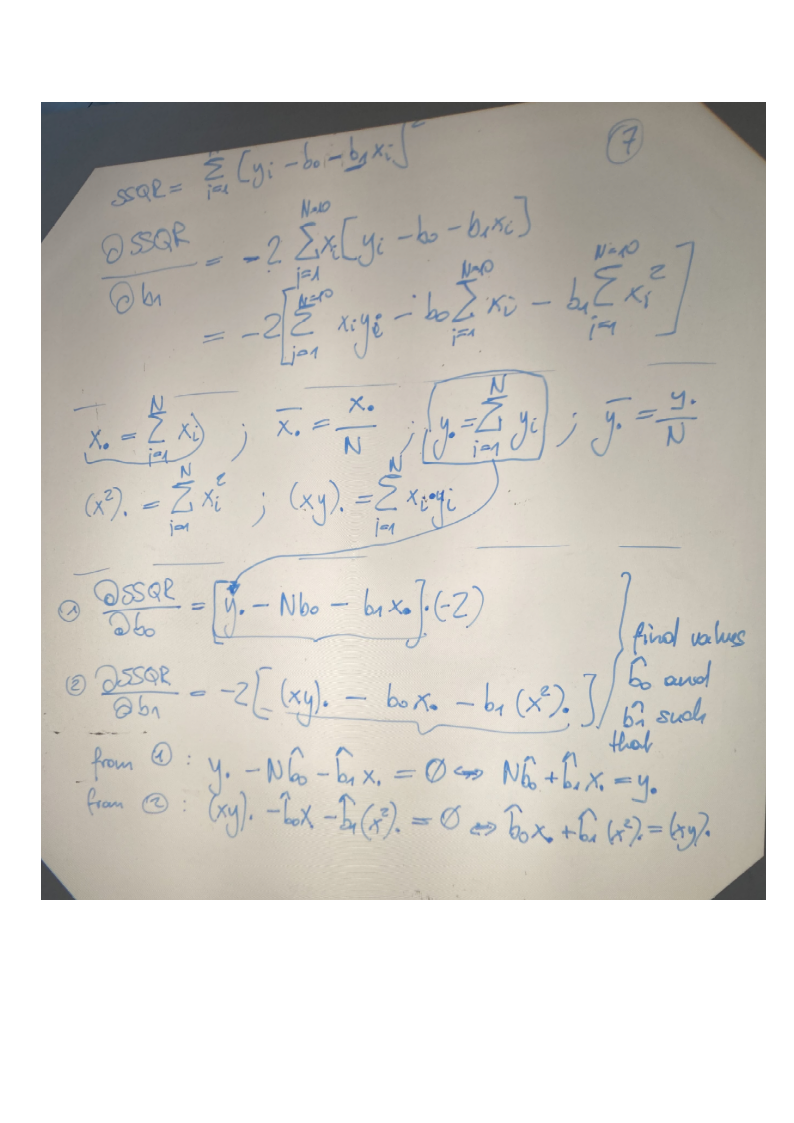 ⑦
SSQR = ∑_{i=1} [y_i - b_0 - b_1 x_i]^2
∂SSQR/∂b_1 = -2 ∑_{i=1}^{N=10} x_i [y_i - b_0 - b_1 x_i]
= -2 [∑_{i=1}^{N=10} x_i y_i - b_0 ∑_{i=1}^{N=10} x_i - b_1 ∑_{i=1}^{N=10} x_i^2]
x. = ∑_{i=1}^{N} x_i ; x̄. = x./N ; y. = ∑_{i=1}^{N} y_i ; ȳ. = y./N
(x^2). = ∑_{i=1}^{N} x_i^2 ; (xy). = ∑_{i=1}^{N} x_i·y_i
① ∂SSQR/∂b_0 = [y. - Nb_0 - b_1 x.]·(-2)
② ∂SSQR/∂b_1 = -2[(xy). - b_0 x. - b_1 (x^2).]
find values
b̂_0 and
b̂_1 such
that
from ① : y. - Nb̂_0 - b̂_1 x. = 0 ⇔ Nb̂_0 + b̂_1 x. = y.
from ② : (xy). - b̂_0 x. - b̂_1 (x^2). = 0 ⇔ b̂_0 x. + b̂_1 (x^2). = (xy).